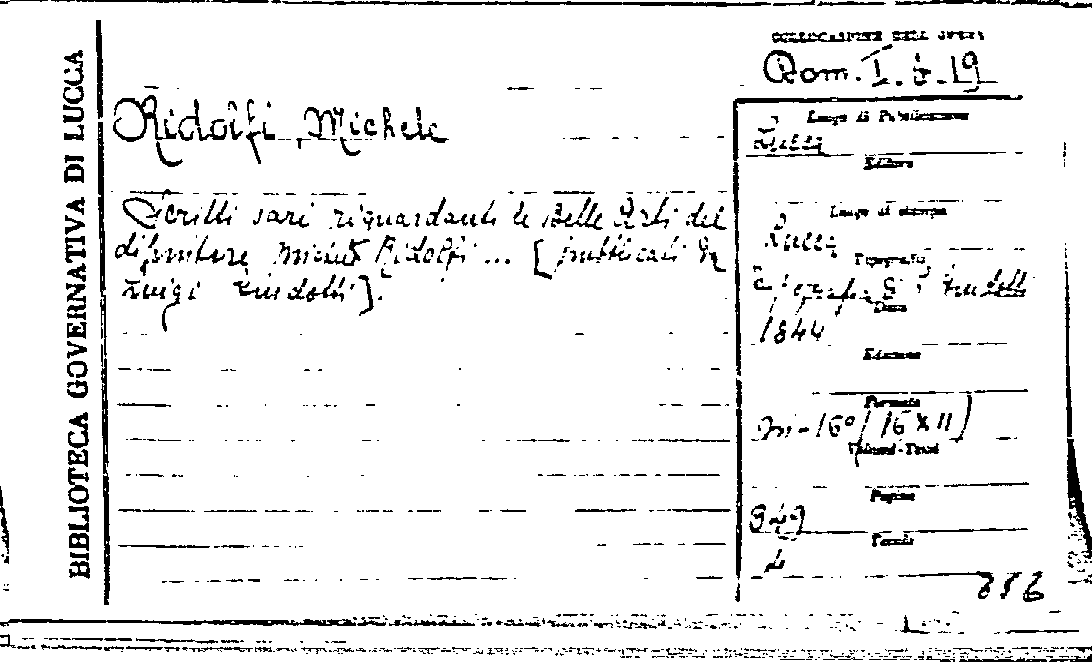 BIBLIOTECA GOVERNATIVA DI LUCCA
COLLOCAZIONE DELL'OPERA
Rom. I. b. 19
Ridolfi, Michele
Scritti vari riguardanti le Belle Arti del
dipintore Michele Ridolfi ... [pubblicati da
Luigi Guidotti].
Luogo di Pubblicazione
Lucca
Editore
Luogo di stampa
Lucca
Tipografia
Tipografia Guidotti
Data
1844
Edizione
Formato
in-16° (16 x 11)
Volumi-Tomi
Pagine
349
Tavole